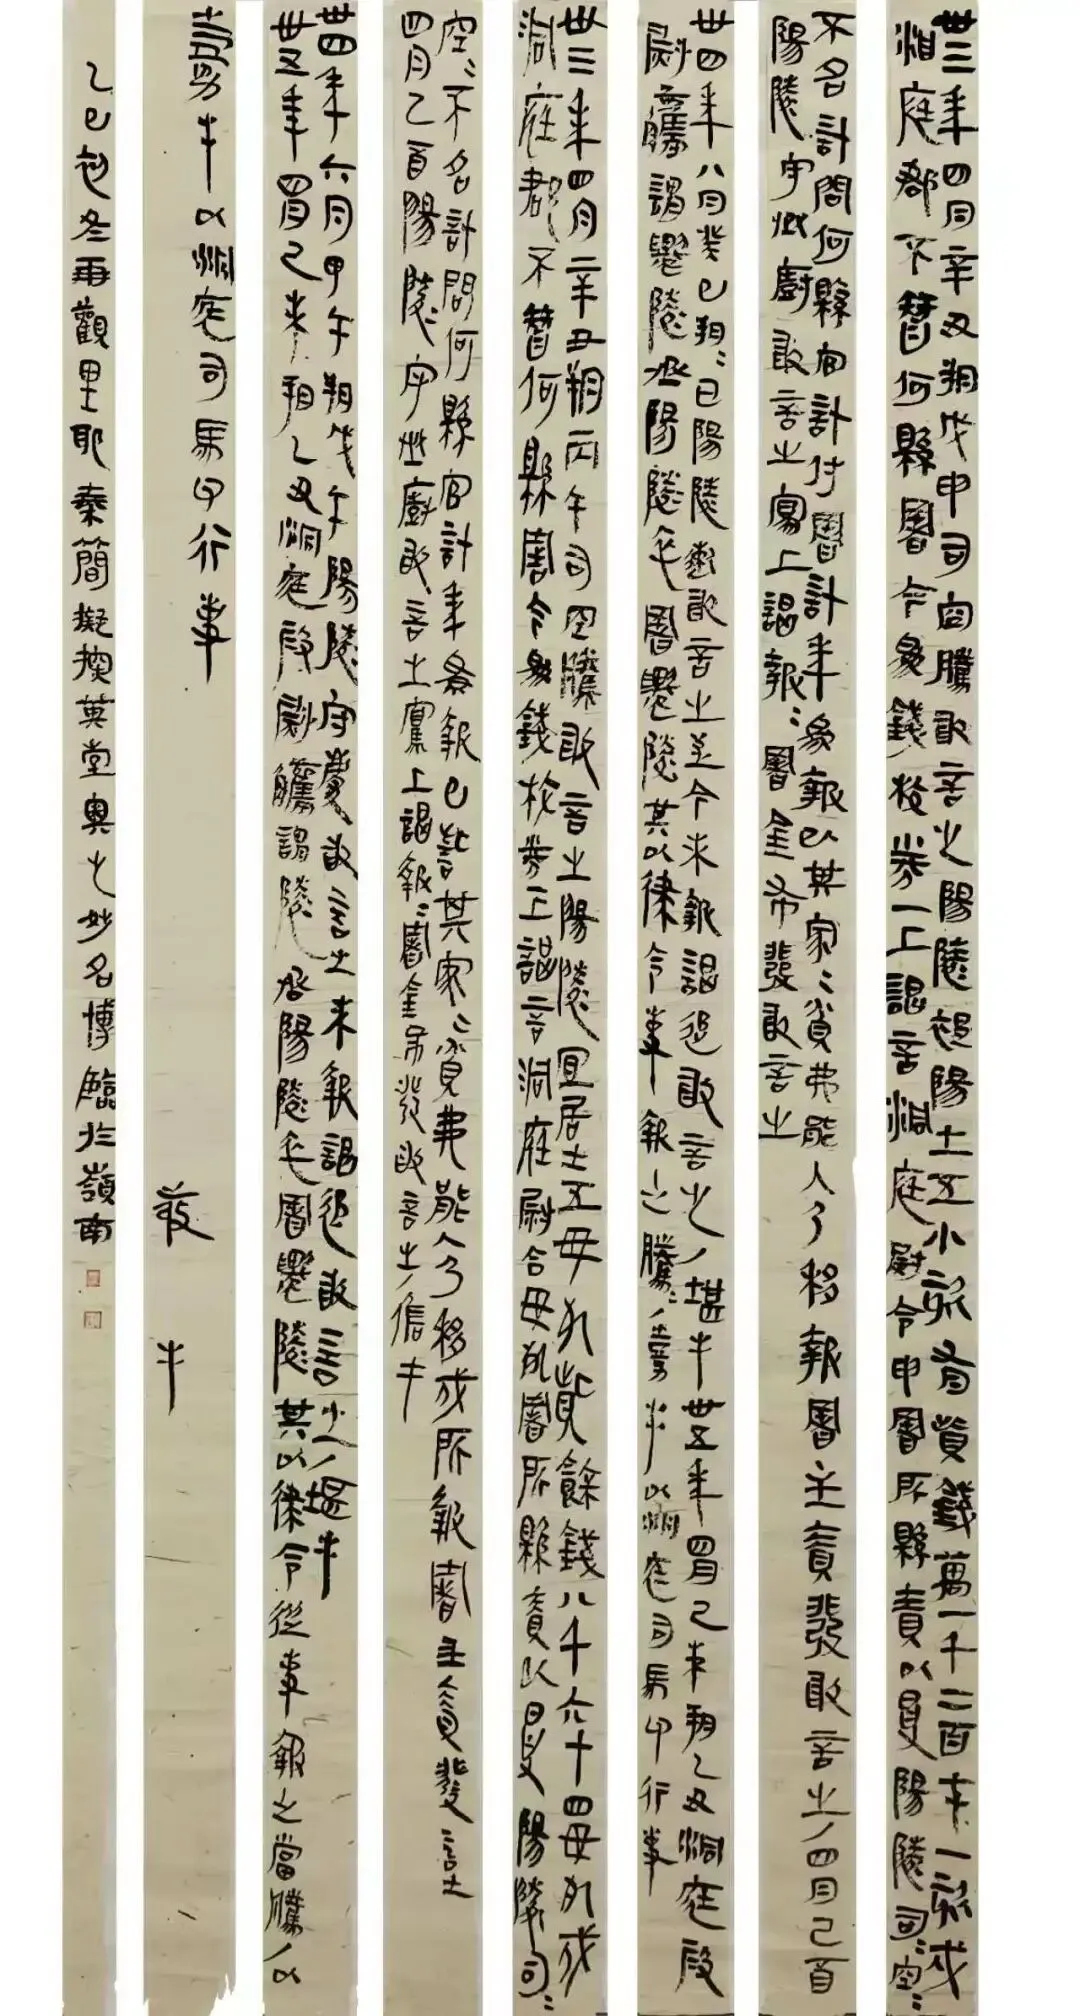 卅三年四月辛丑朔戊申司空騰敢言之陽陵褆陽上造小欬有貲錢萬一千二百七十一欬戍
洞庭郡不智何縣署今為錢校券一上謁言洞庭尉令申署所縣責以受陽陵司＝空＝
不名計問何縣官計付署計年為報已其家＝貧弗能入乃移報署主責發敢言之／四月己酉
陽陵守丞廚敢言之寫上謁報＝署金布發敢言之
卅四年八月癸巳朔＝日陽陵遬敢言之至今未報謁追敢言之／堪手卅五年四月己未朔乙丑洞庭叚
尉觿謂遷陵丞陽陵卒署遷陵其以律令事報之騰＝／嘉手以洞庭司馬印行事
卅三年四月辛丑朔丙午司空騰敢言之陽陵宜居士五毋死貲餘錢八千六十四毋死戍
洞庭郡不智何縣署今為錢校券上謁言洞庭尉令毋死署所縣責以受陽陵司＝
空＝不名計問何縣官計年為報已訾其家＝貧弗能入乃移戍所報署主責發言之
四月乙酉陽陵守丞廚敢言之寫上謁報＝署金布發敢言之／儋手
卅四年六月甲午朔戊午陽陵守慶敢言之未報謁追敢言之／堪手
卅五年四月己未朔乙丑洞庭叚尉觿謂遷陵丞陽陵卒署遷陵其以律令從事報之當騰／以
嘉手以洞庭司馬印行事
敬手
乙巳初冬再觀里耶秦簡擬換英堂奧之妙名博臨於嶺南